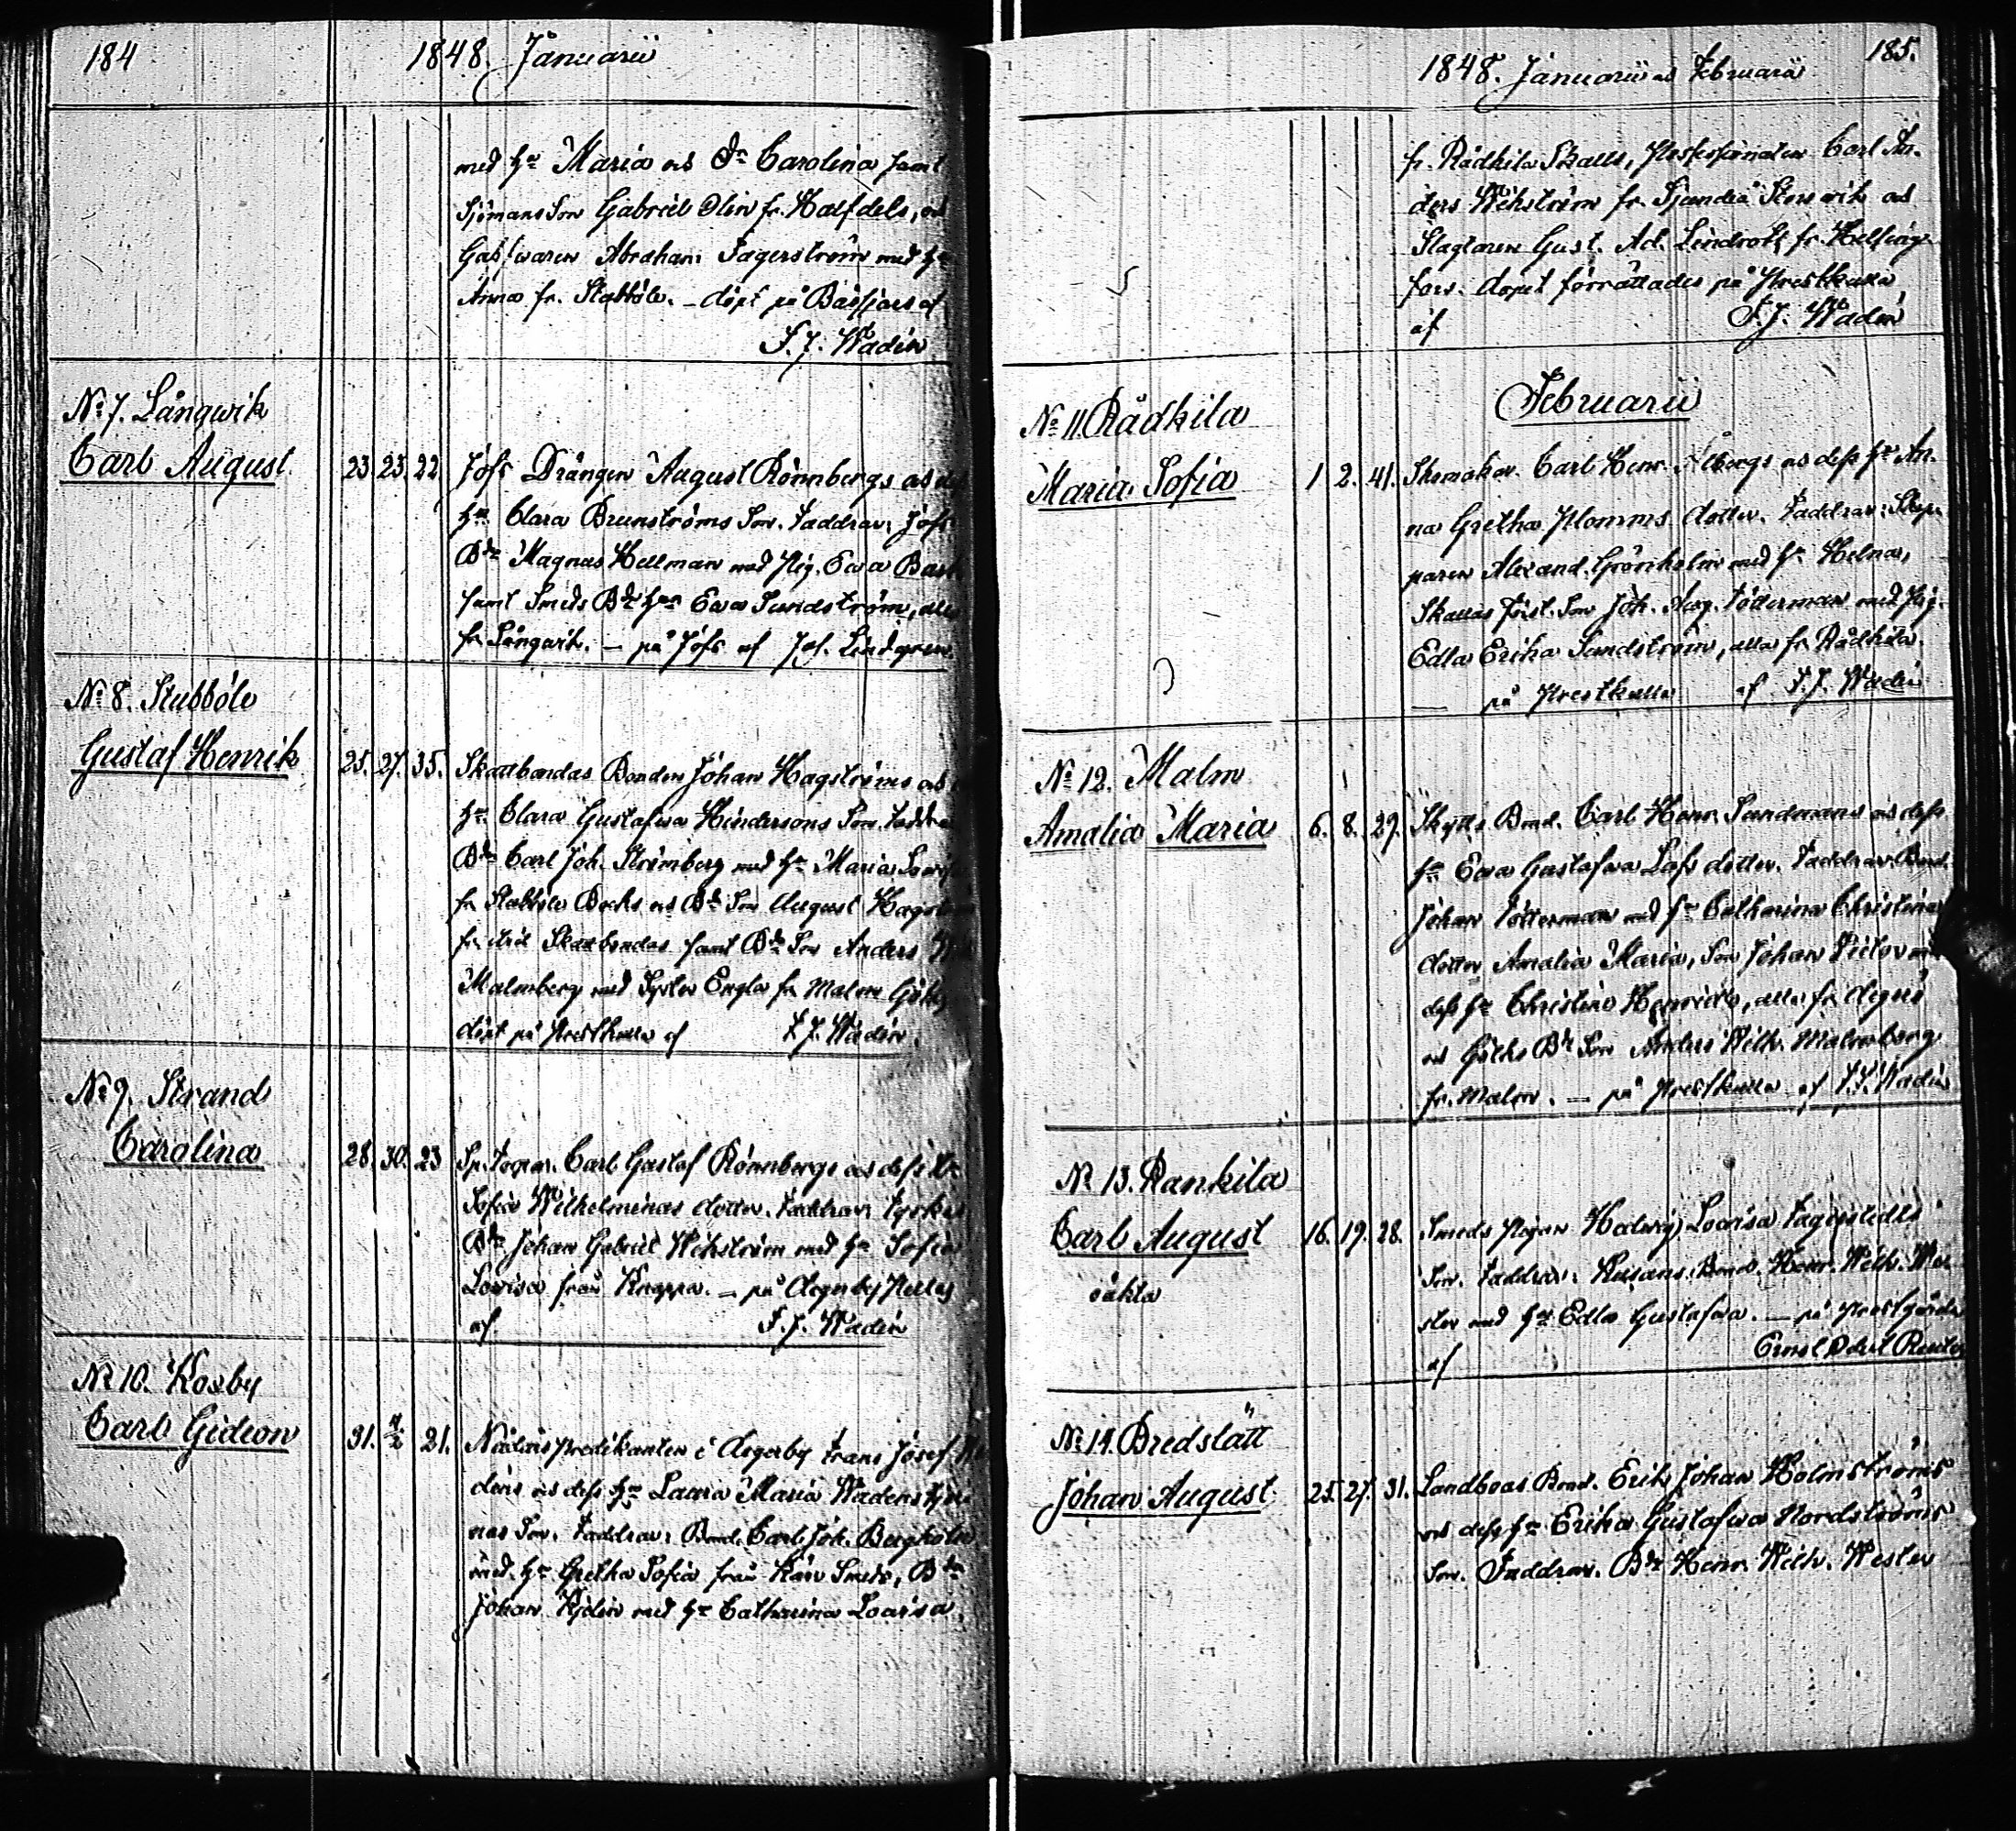 184
1848. Januarii
med h:u Maria och D:r Carolina samt
Sjömans Son Gabriel Olin fr. Halfdels, och
Abraham Fagerström med h:u
Anna fr. Stubböle. – döpt på Båssjars af
F. J. Wadén
N:o 7. Långwik
Carl August 23. 23. 22. Jofs Drängen August Rönnbergs och
h:u Clara Brunströms Son. Faddrar: Jofs
B:de Magnus Hellman med Pig. Ewa
samt Smeds B:de h:u Ewa Sundström, alla
fr. Långwik. – på Jofs af Jos. Lindgren
N:o 8. Stubböle
Gustaf Henrik 25. 27. 35. Skattbondas Bonden Johan Hagströms och
h:u Clara Gustafwa Hindersons Son.
B:de Carl Joh. Strömberg med h:u Maria
fr. Stubböle Backs och B:de Son August
fr. Skattbondas samt B:de Son Anders
Malmberg med Syster Engla fr. Malm
döpt på Prestkulla af F. J. Wadén.
N:o 9. Strand
Carolina 28. 30. 23 Sp. Torpar. Carl Gustaf Rönnbergs och dess h:u
Sofia Wilhelminas dotter. Faddrar:
B:de Johan Gabriel Wikström med h:u Sofia
Lovisa från Knappa. – på Degerby
af F. J. Wadén
N:o 10. Kosby
Carl Gideon 31. 4/2 21. Nådårs Predikanten i Degerby Frans Josef
déns och dess h:u Laura Maria
nas Son. Faddrar: Bond. Carl Joh. Bergholm
med h:u Gretha Sofia från Smeds, B:de
Johan med h:u Catharina Lovisa
185.
1848. Januarii och Februarii
fr. Rådkila Skalls, Professionaten Carl An-
ders Wikström fr. Sjundeå Störswik och
Slagtaren Gust. Ad. Lindroth fr. Helsing-
fors. dopet förrättades på Prestkulla
af F. J. Wadén
Februarii
N:o 11. Rådkila
Maria Sofia 1. 2. 41. Skomakar. Carl Henr. Ålbergs och dess h:u An-
na Gretha Plomms dotter. Faddrar: Skep-
paren Alexand. Grönholm med h:u Helna,
Skallas Son Joh. Aug. Tötterman med Pig.
Edla Erika Sundström, alla fr. Rådkila.
– på Prestkulla af F. J. Wadén
N:o 12. Malm
Amalia Maria 6. 8. 29. Skytts Bond. Carl Henr. Sandmans och dess
h:u Ewa Gustafwa Lass dotter. Faddrar: Bond.
Johan Tötterman med h:u Catharina Christina
dotter Amalia Maria, Son Johan Victor med
dess h:u Christina, alla fr. Degerö
och Göths B:de Son Anders Wilh. Malmberg
fr. Malm. – på Prestkulla af F. J. Wadén
N:o 13. Rankila
Carl August 16. 19. 28. Smeds Pigan Hedwig Lovisa Fagerstedts
oäkta Son. Faddrar: Kusans Bond. Henr. Wilh. Wes-
ter med h:u Edla Gustafwa. – på Prestgården
af Ernst Odert Reuter
N:o 14. Bredslätt
Johan August 25. 27. 31. Landboas Bond. Erik Johan Holmströms
och dess h:u Erika Gustafwa Nordströms
Son. Faddrar. B:de Henr. Wilh. Wester